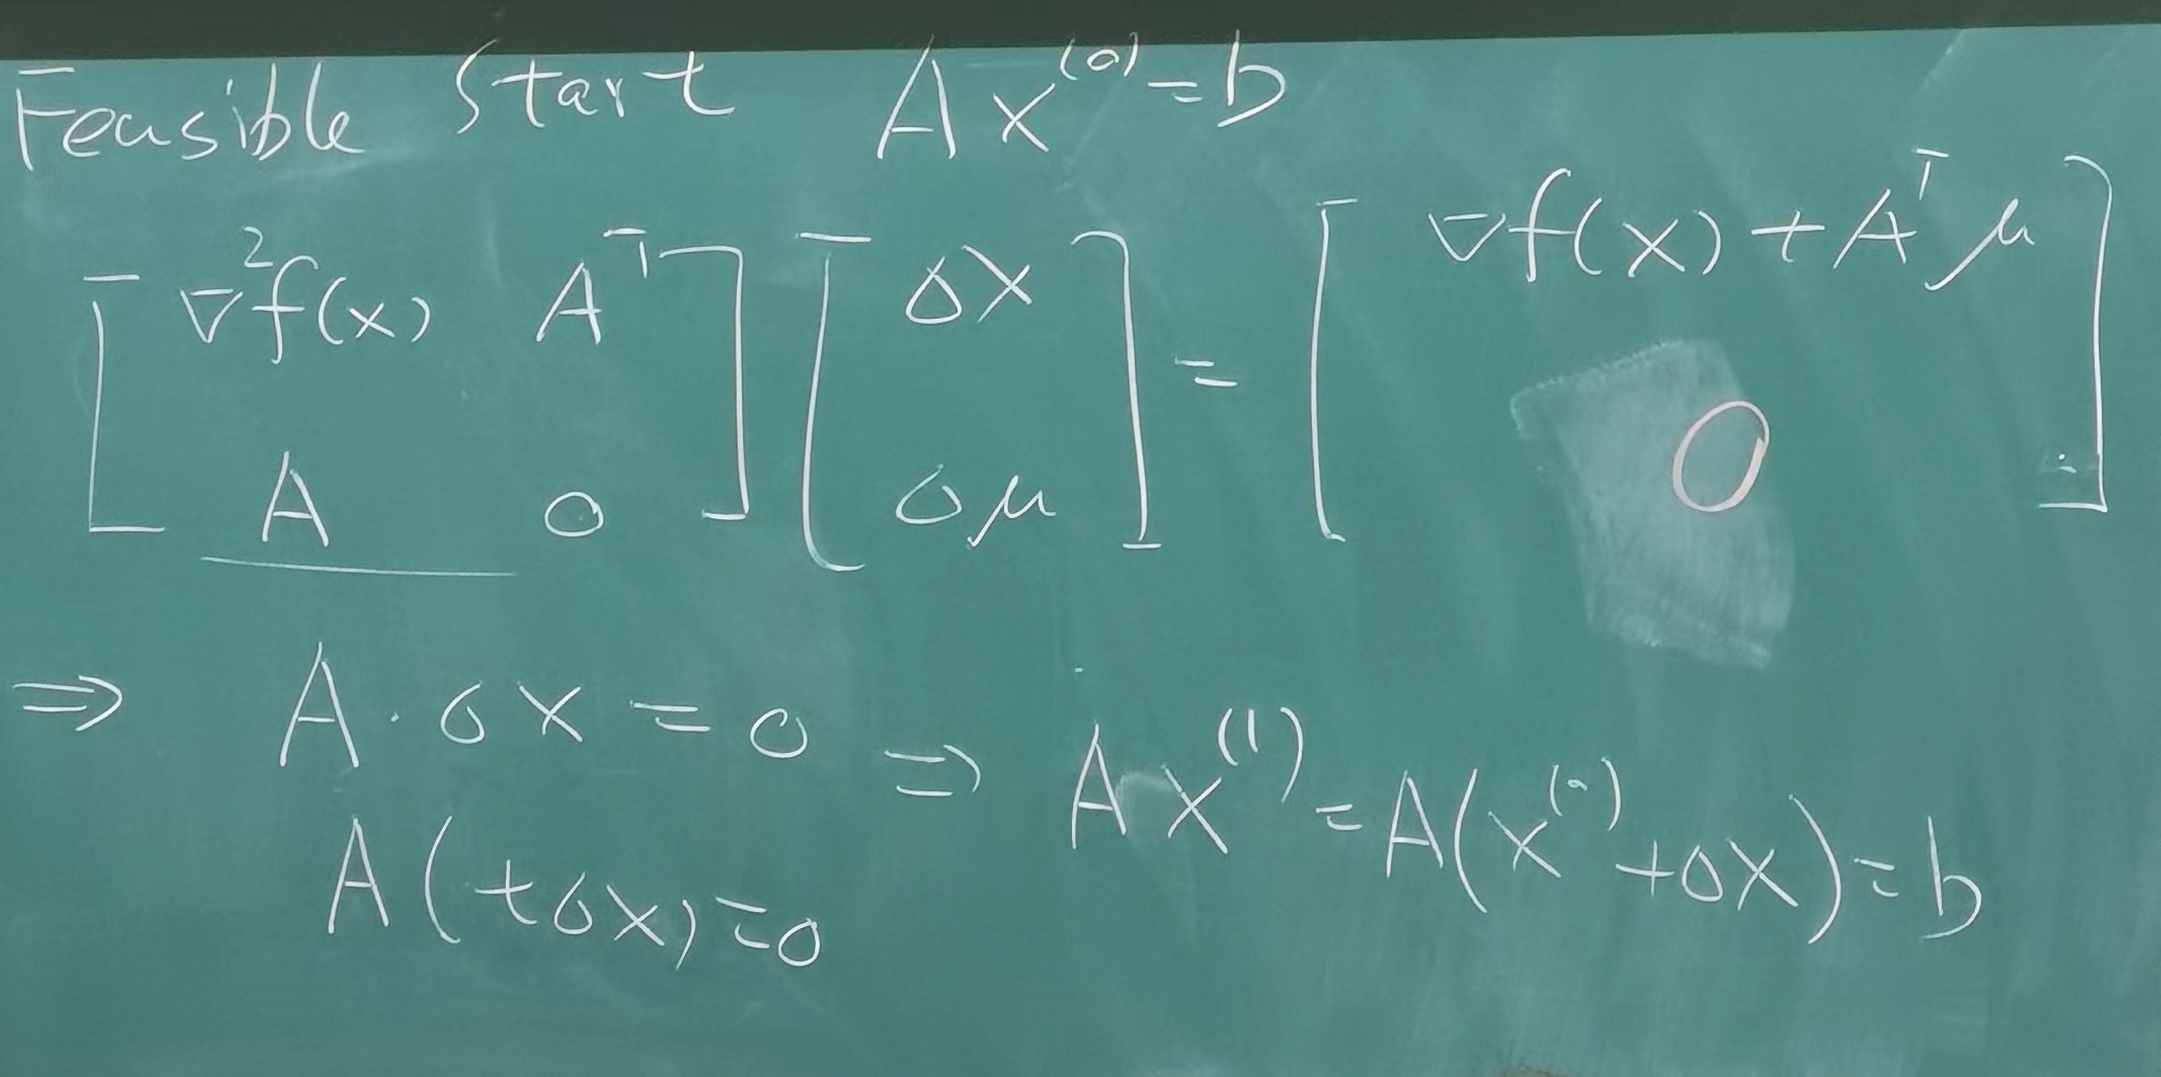 Feasible Start Ax⁽⁰⁾ = b
[ ∇²f(x) Aᵀ ] [ Δx ] = [ ∇f(x) + Aᵀμ ]
[ A 0 ] [ Δμ ] [ 0 ]
⇒ A · Δx = 0 ⇒ Ax⁽¹⁾ = A(x⁽⁰⁾ + Δx) = b
A(tΔx) = 0